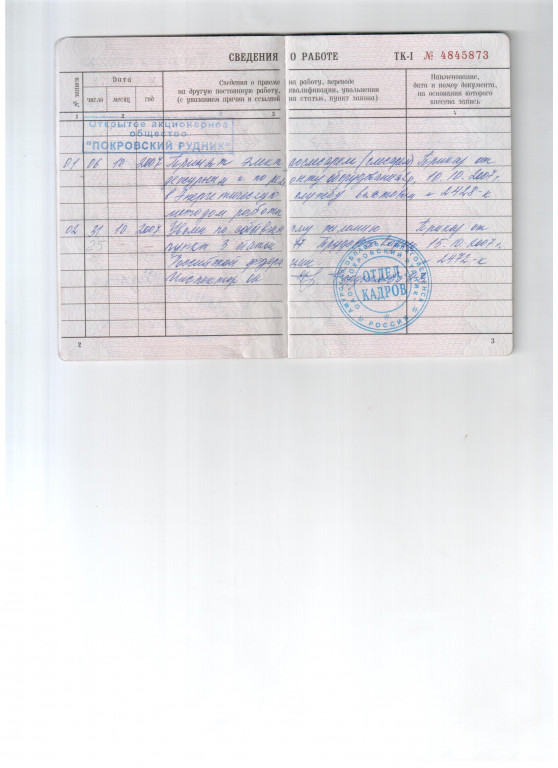 СВЕДЕНИЯ О РАБОТЕ ТК-I № 4845873
№ записи
Дата
число месяц год
Сведения о приеме на работу, переводе
на другую постоянную работу, квалификации, увольнении
(с указанием причин и ссылкой на статью, пункт закона)
Наименование,
дата и номер документа,
на основании которого
внесена запись
1 2 3 4
Открытое акционерное
общество
"ПОКРОВСКИЙ РУДНИК"
01 06 10 2007 Принят Приказ от
дежурным и по ремонту оборудования, 10.10.2007г.
в Энергетическую службу вахтовым № 2428-к
методом работы
02 31 10 2007 Уволен по собственному желанию Приказ от
пункт 3 77 15.10.2007г.
Российской № 2472-к
Инспектор
ОТДЕЛ
КАДРОВ
РОССИЯ
2 3